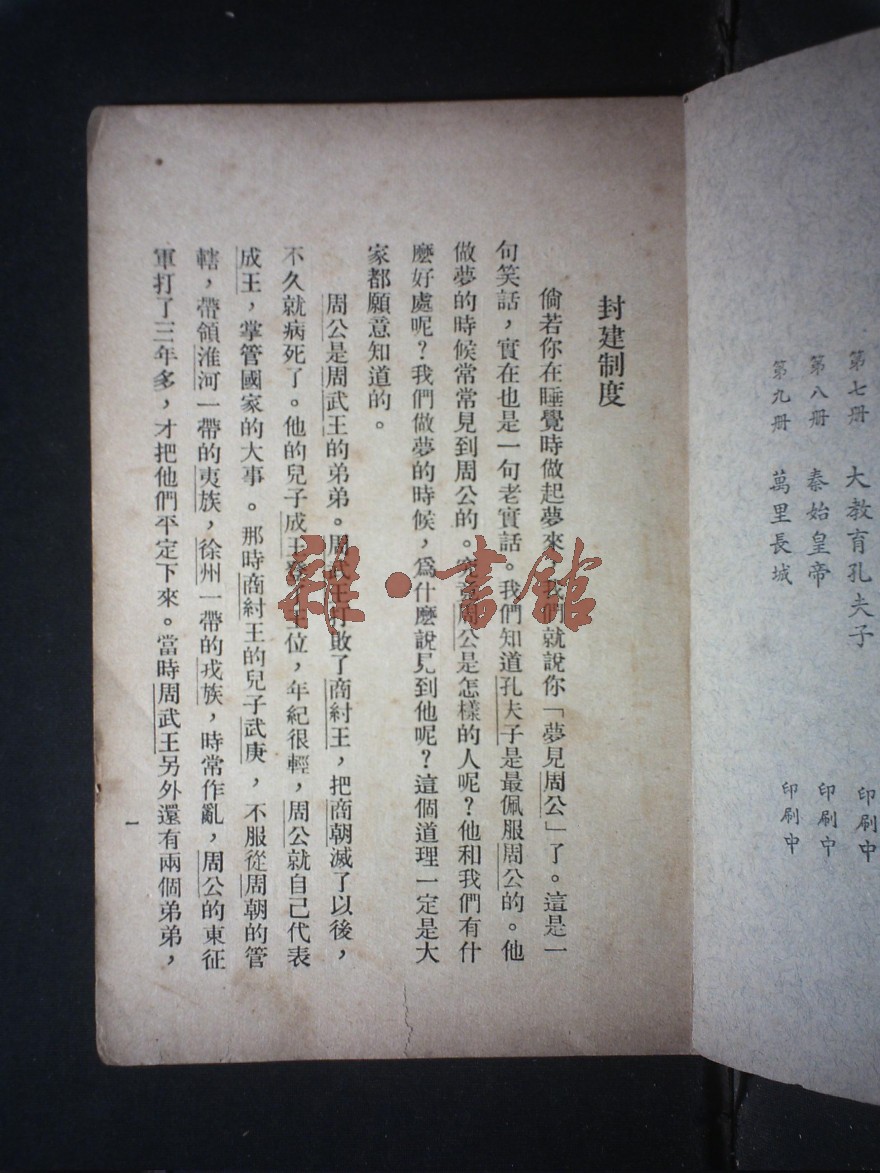 第七册　大教育孔夫子　印刷中
第八册　秦始皇帝　印刷中
第九册　萬里長城　印刷中
封建制度
倘若你在睡覺時做起夢來，我們就說你「夢見周公」了。這是一
句笑話，實在也是一句老實話。我們知道孔夫子是最佩服周公的。他
做夢的時候常常見到周公的。究竟周公是怎樣的人呢？他和我們有什
麽好處呢？我們做夢的時候，爲什麽說見到他呢？這個道理一定是大
家都願意知道的。
周公是周武王的弟弟。周武王打敗了商紂王，把商朝滅了以後，
不久就病死了。他的兒子成王登了王位，年紀很輕，周公就自己代表
成王，掌管國家的大事。那時商紂王的兒子武庚，不服從周朝的管
轄，帶領淮河一帶的夷族，徐州一帶的戎族，時常作亂，周公的東征
軍打了三年多，才把他們平定下來。當時周武王另外還有兩個弟弟，
一
雜·書館